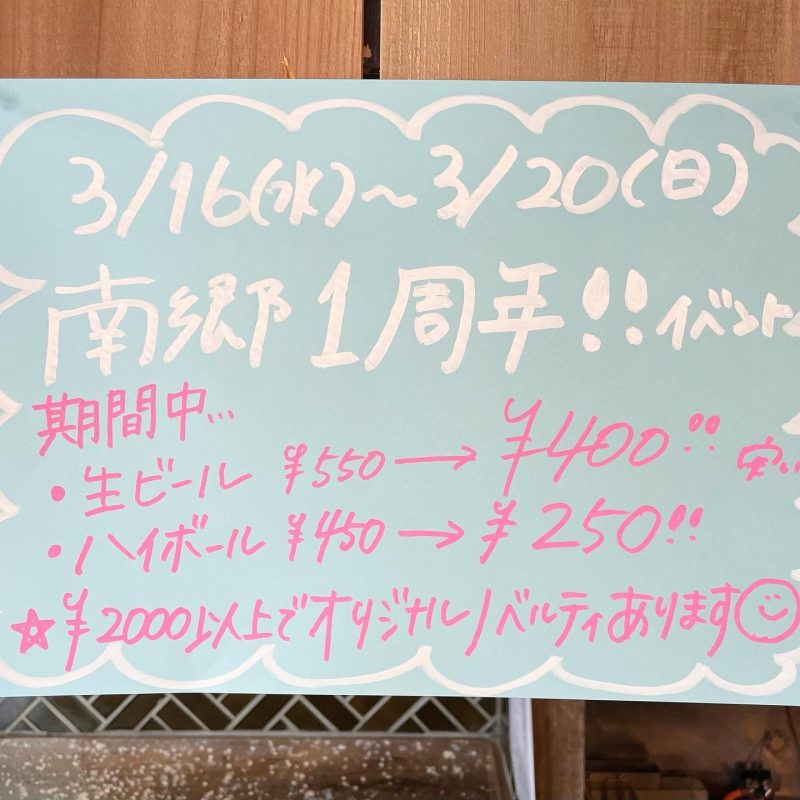 3/16(水)～3/20(日)
南郷1周年!!イベント
期間中...
・生ビール ¥550→¥400!! 安い
・ハイボール ¥450→¥250!!
☆¥2000以上でオリジナルノベルティあります